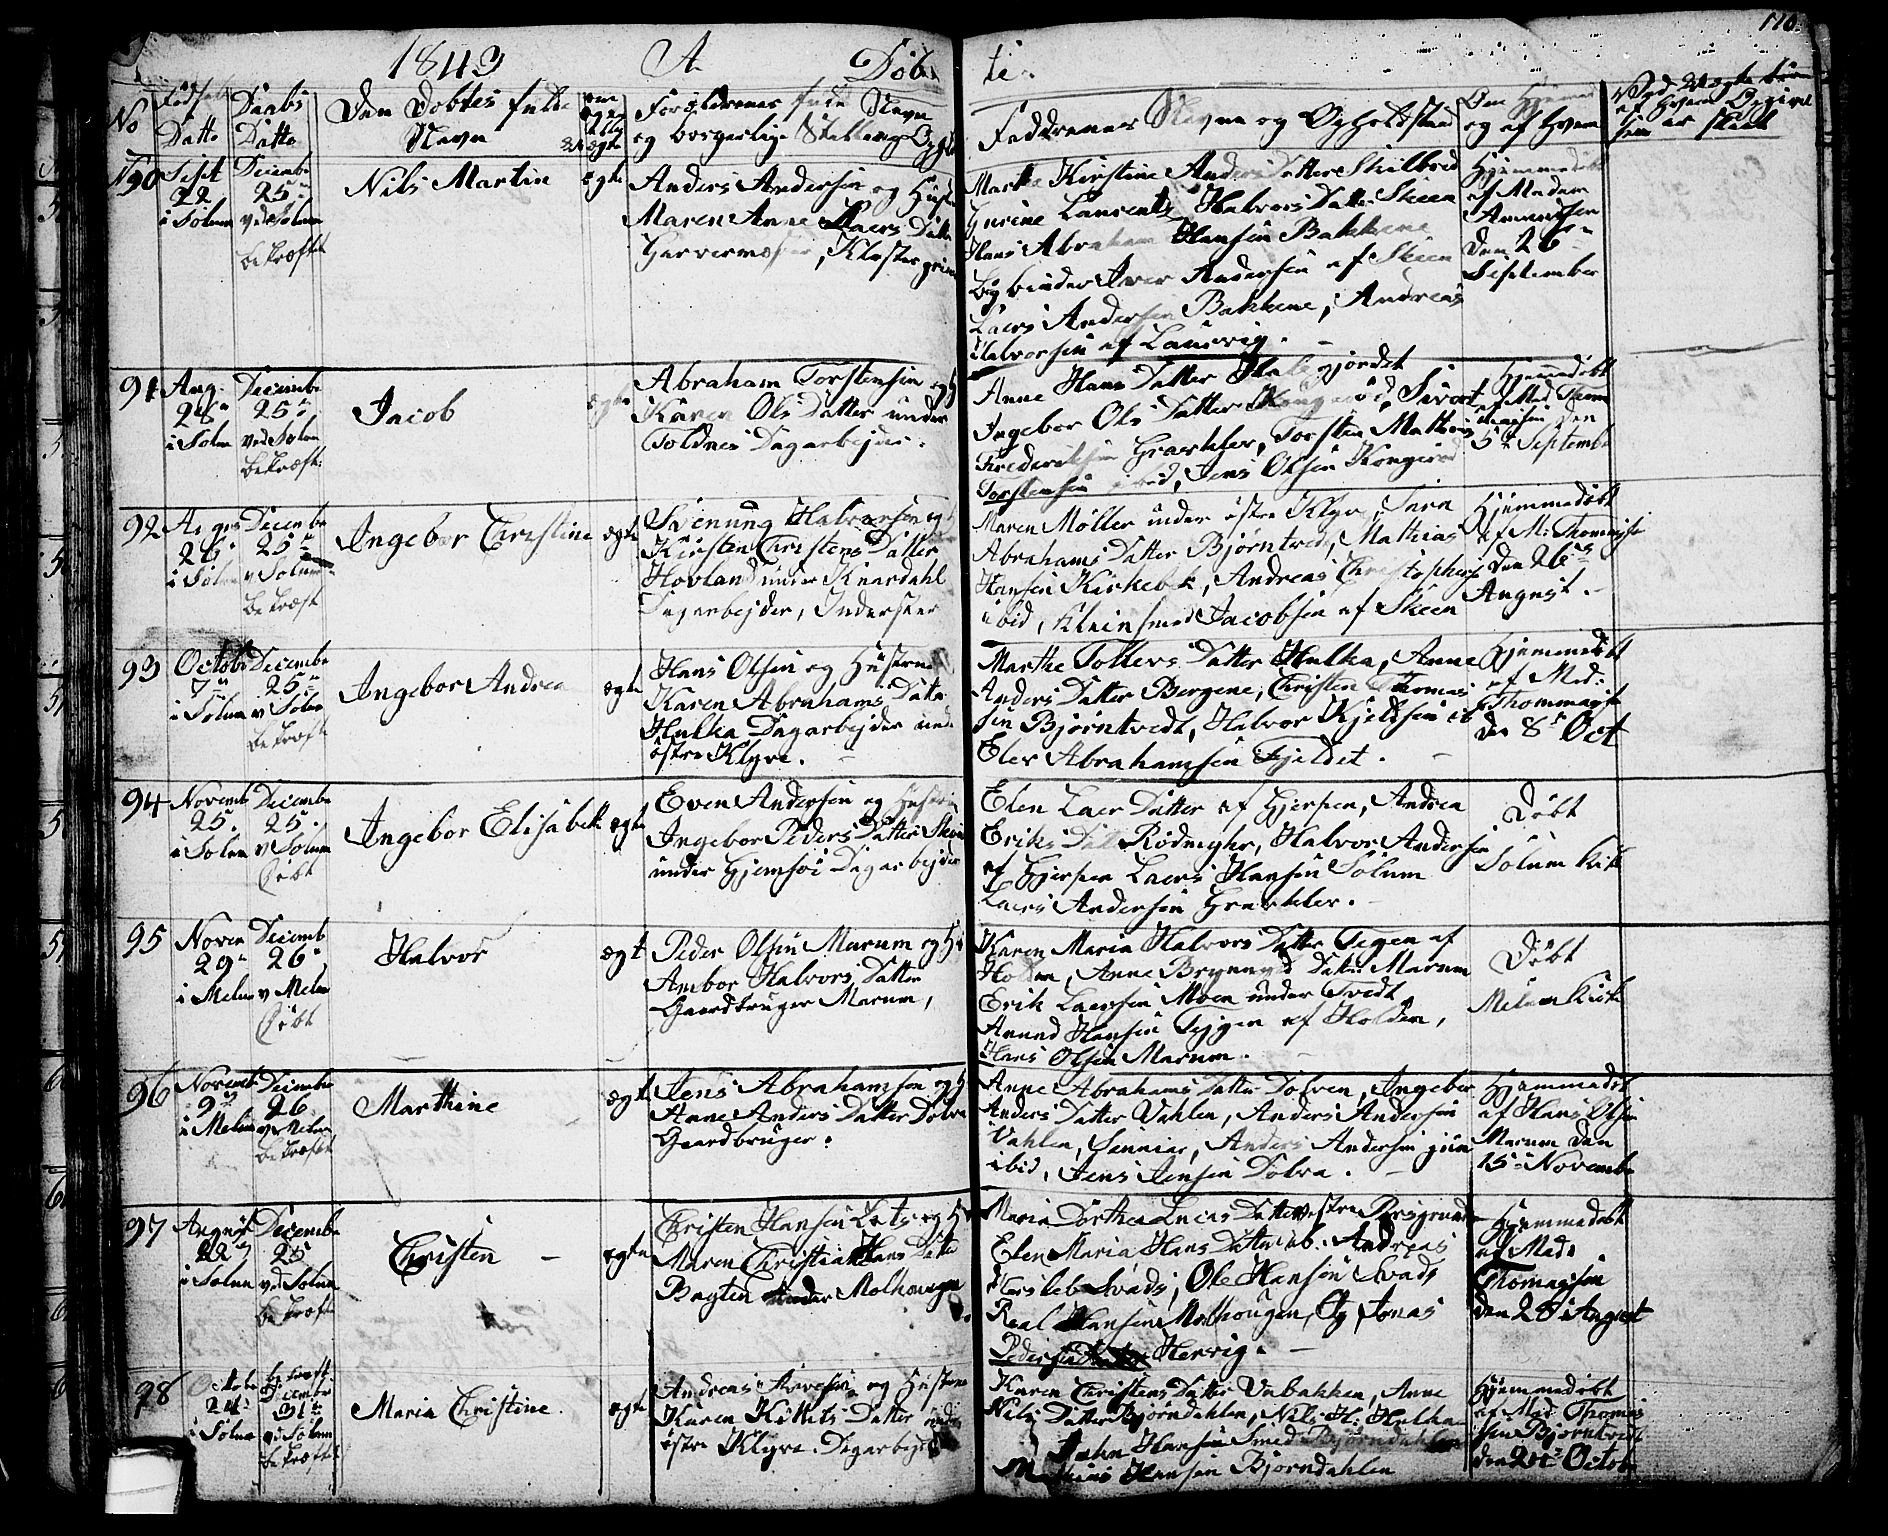 1843 A Döbte. 176.
No
Födsels Datto
Daabs Datto
Den Döbtes fulde Navn
om ægte eller uægte
Forældrenes fulde Navn
og borgerlig Stilling
Faddrenes Navne og Opholdsted
Om Hjemmed
og af Hvem
90
Sept
22
i Solum
Decembr
25
ved Solum
bekræftet
Nils Martin
ægte
Anders Andersen og Hustr
Maren Anne Laers Datter
Garvermester, Kloster
Marthe Kirstine Anders Datter Skilbred
Gurine Laurentz Halvors Datter Skeen
Hans Abraham Hansen Bakkene
Bogbinder Iver Andersen af Skeen
Laers Andersen Bakkene, Andreas
Halvorsen af Laurvig.
Hjemmedöbt
af Madam
Amundsen
den 26
September
91
Aug.
28
i Solum
Decembr
25
ved Solum
bekræft:
Jacob
ægte
Abraham Torstensen og H
Karen Ols Datter under
Dagarbejder.
Anne Hans Datter
Ingebor Ols Datter
Frederiksen Graekler, Torsten Mathis
Torstensen ibid, Jens Olsen Kongerød
Hjemmedöbt
af Mad Thom
den
5 Septembr
92
August
26
i Solum
Decembr
25
v Solum
bekræft
Ingebor Christine
ægte
Svenung Halvorsen og H
Kirsten Christens Datter
Hovland under Knardahl
Dagarbejder, Inderster
Maren Møller under østre Klyve, Sara
Abrahams Datter Bjørntvedt, Mathias
Hansen Kirkebek, Andreas Christophers
ibid, Kleinsmed Jacobsen af Skeen
Hjemmedöbt
af M: Thommese
den 26
August.
93
Octobr
7
i Solum
Decembr
25
v Solum
bekræft
Ingebor Andrea
ægte
Hans Olsen og Hustrue
Karen Abrahams Datter
Hulka Dagarbejder under
østre Klyve.
Marthe Tollevs Datter Hulka, Anne
Anders Datter Bergene, Christen Thomas
sen Bjørntvedt, Halvor Kjeldsen ib
Elev Abrahamsen Fjeldet.
Hjemmedöbt
af Mad:
Thommese
den 8 Oct
94
Novemb
25
i Solum
Decembr
25
v Solum
Döbt
Ingebor Elisabeth
ægte
Even Andersen og Hustrue
Ingebor Peders Datter
under Gjemsøe Dagarbejder
Elen Laers Datter af Gjerpen, Andrea
Eriks Datter Rødmyhr, Halvor Andersen
af Gjerpen Laers Hansen Solum
Laers Andersen Graekler.
Döbt
Solum Kirk
95
Novem
29
i Melum
Decemb
26
v Melum
Döbt
Halvor
ægt
Peder Olsen Marum og H
Ambor Halvors Datter
Gaardbruger Marum,
Karen Maria Halvors Datter Tegen af
Holden, Anne Brynnild Datter Marum
Erik Laersen Moen under Tvedt
Amund Hansen Teigen af Holden,
Hans Olsen Marum.
Döbt
Melum Kirk
96
Novemb
9
i Melum
Decembr
26
v Melum
bekræftet
Marthine
ægt
Jens Abrahamsen og H
Anne Anders Datter Dolva
Gaardbruger.
Anne Abrahams Datter Dolven, Ingebor
Anders Datter Vahlen, Anders Andersen
Vahlen, Sennier, Anders Andersen jun
ibid, Jens Jensen Dolva.
Hjemmedöbt
af Hans Olsen
Marum den
15 Novembr
97
August
22
i Solum
Decembr
25
ved Solum
bekræft
Christen
ægte
Christen Hansen Lots og H
Maren Christian Hans Datter
Bagten under Molhougen
Maria Dorthea Lucas Datter vestre Porsgrund
Elen Maria Hans Datter ib. Andreas
Hersleb Svads, Ole Hansen Svads
Real Hansen Molhougen, Og Jonas
Pedersen Hervig.
Hjemmedöbt
af Mad.
Thomasen
den 28 August
98
Octobr
24
i Solum
bekræft
Decembr
31
ved Solum
bekræftet
Maria Christine.
ægte
Andreas Arvesen og Hustrue
Karen Kittils Datter under
østre Klyve. Dagarbejder
Karen Christens Datter Vabakken, Anne
Nils Datter Bjørndahlen, Nils H: Hulka
John Hansen Smed Bjørndahlen
Mathias Hansen Bjørndahlen
Hjemmedöbt
af Mad. Thomas
sen Bjørntvedt
den 24 Octobr